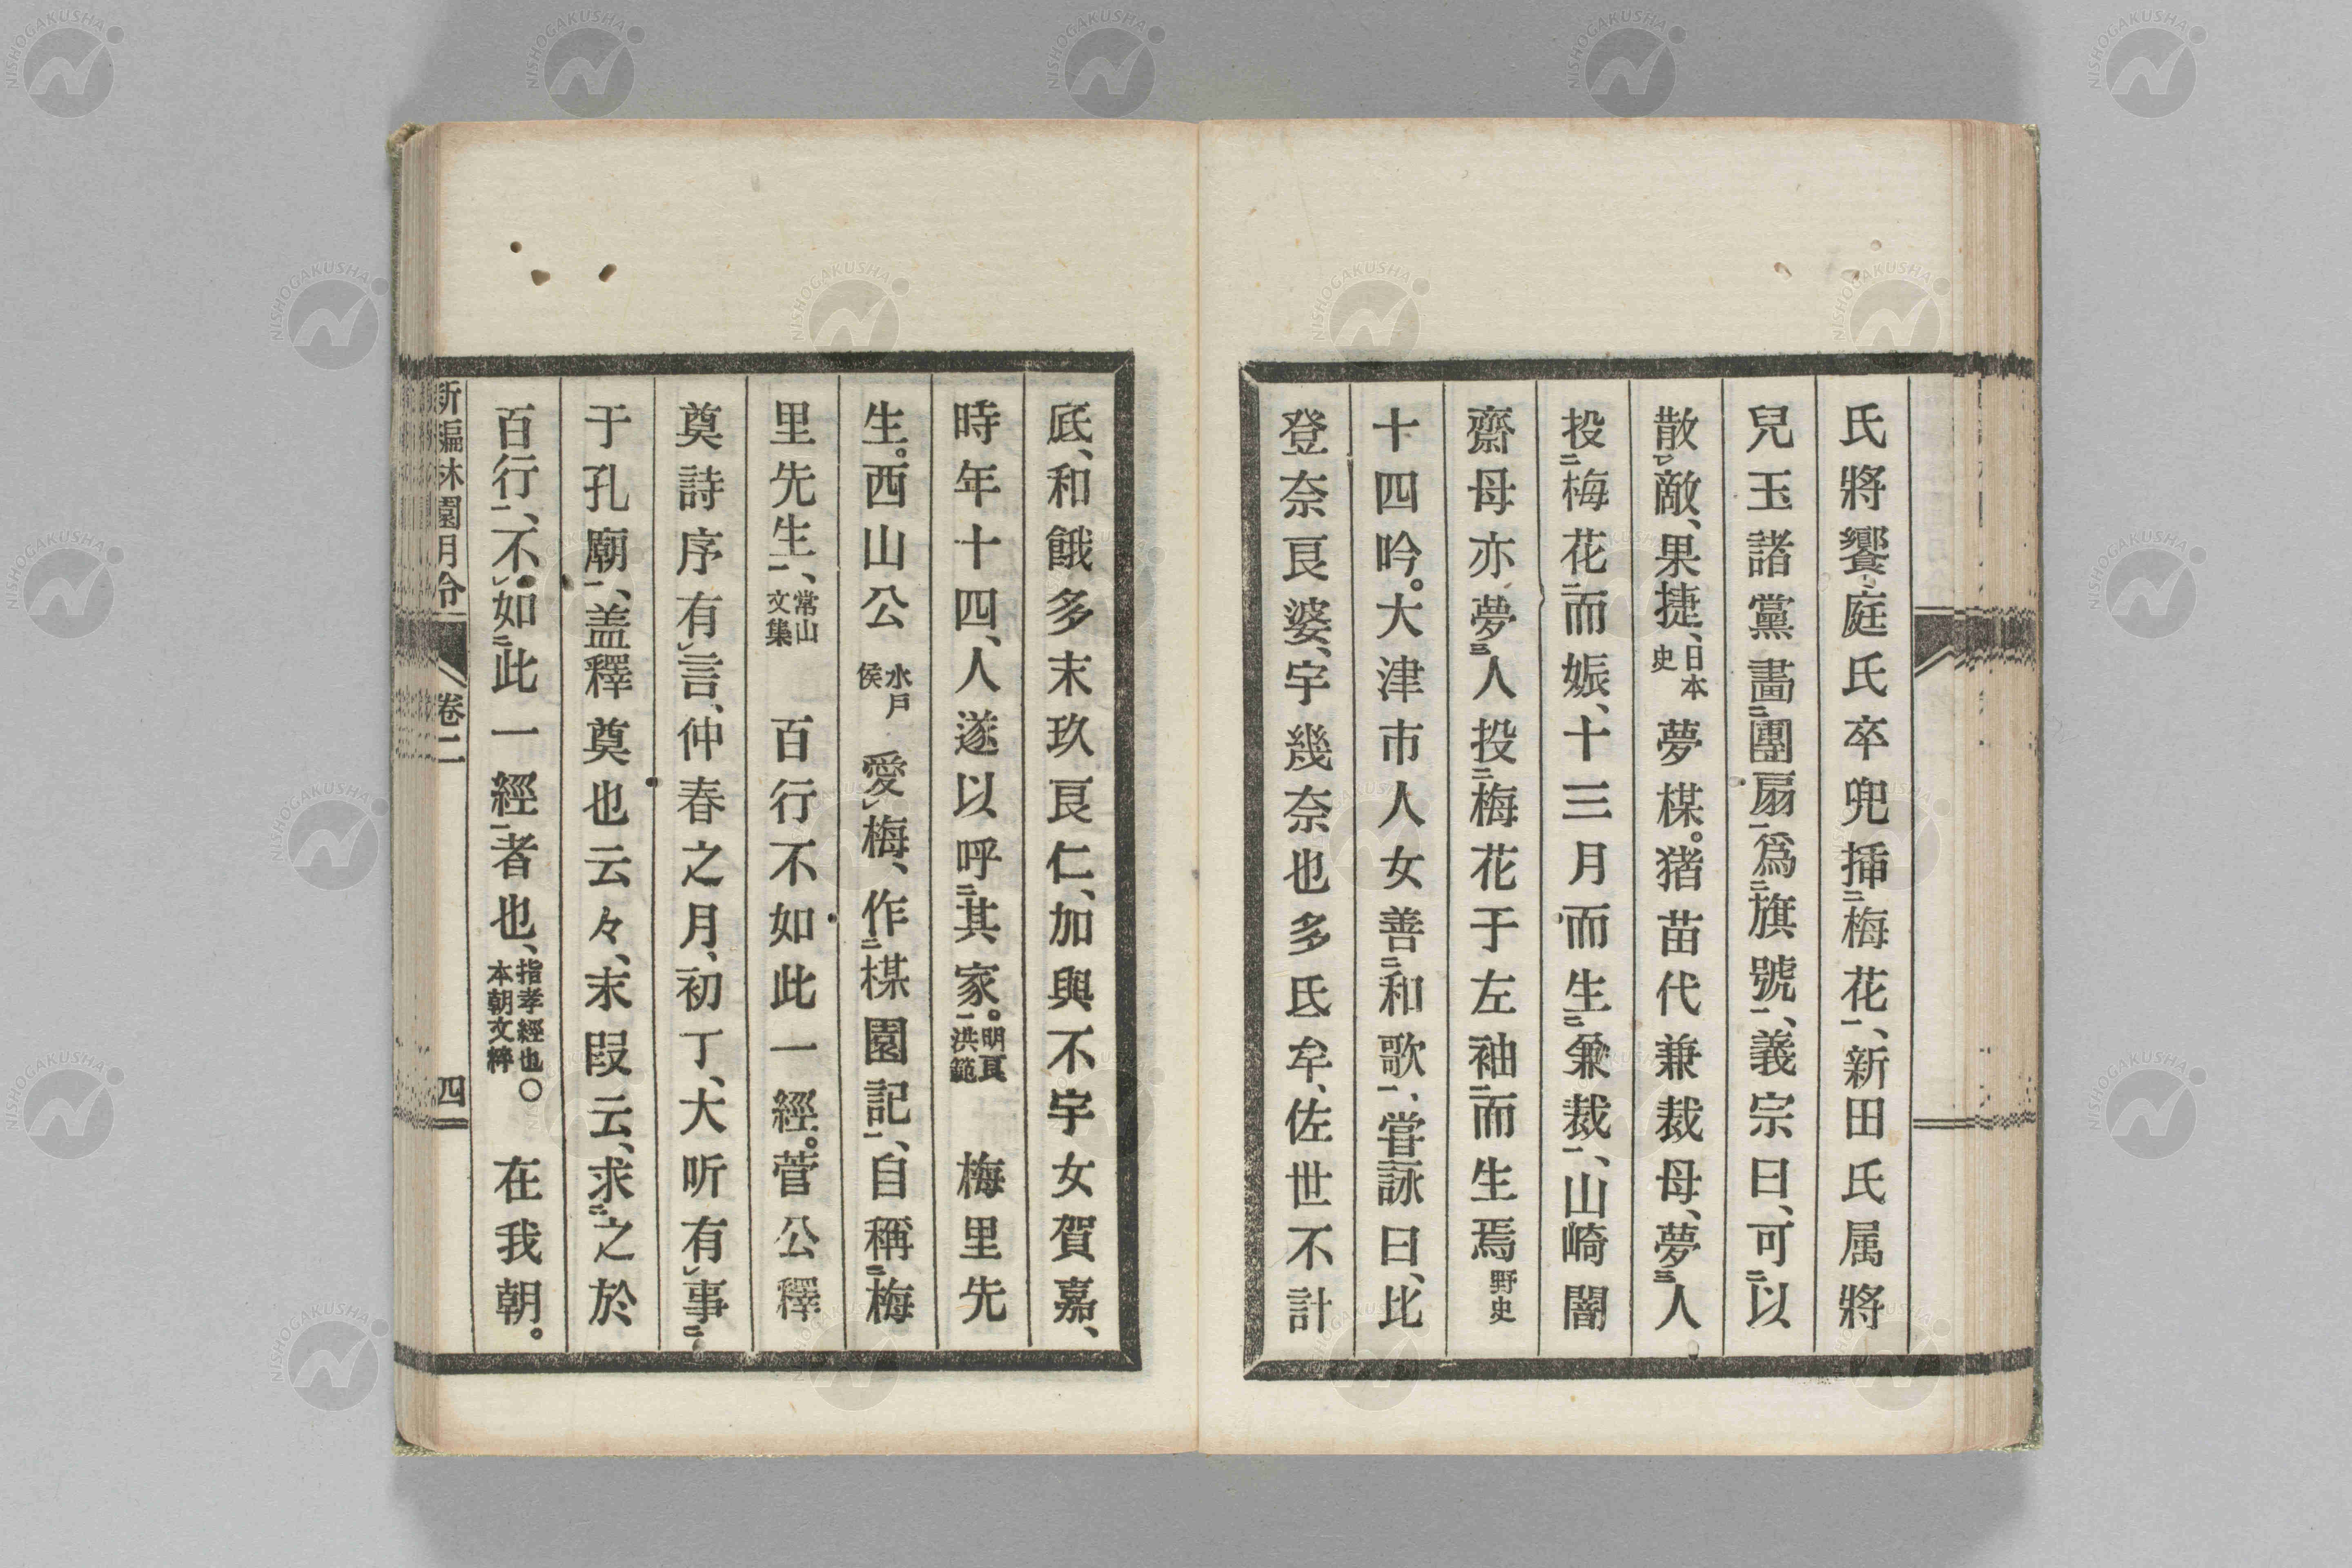 氏將饗庭氏卒兜揷㆓梅花㆒、新田氏属將
兒玉諸黨畵㆓團扇㆒爲㆓旗號㆒、義宗曰、可㆔以
散㆑敵、果捷、日本史 夢楳。猪苗代兼裁母、夢㆔人
投㆓梅花㆒而娠、十三月而生㆓兼裁㆒、山崎闇
齋母亦夢㆔人投㆓梅花于左袖㆒而生焉 野史
十四吟。大津市人女善㆓和歌㆒、甞詠曰、比
登奈良婆、宇幾奈也多氐牟、佐世不計
底、和餓多末玖良仁、加與不宇女賀嘉、
時年十四、人遂以呼㆓其家㆒。明良洪範 梅里先
生。西山公 水戸侯 愛㆑梅、作㆓楳園記㆒、自稱㆓梅
里先生㆒、常山文集 百行不如此一經。菅公釋
奠詩序有㆑言、仲春之月、初丁、大昕有㆑事㆓
于孔廟㆒、盖釋奠也云々、末叚云、求㆓之於
百行㆒、不㆑如㆓此一經㆒者也、指孝經也〇本朝文粹 在我朝。
新編林園月令 卷二 四
NISHOGAKUSHA